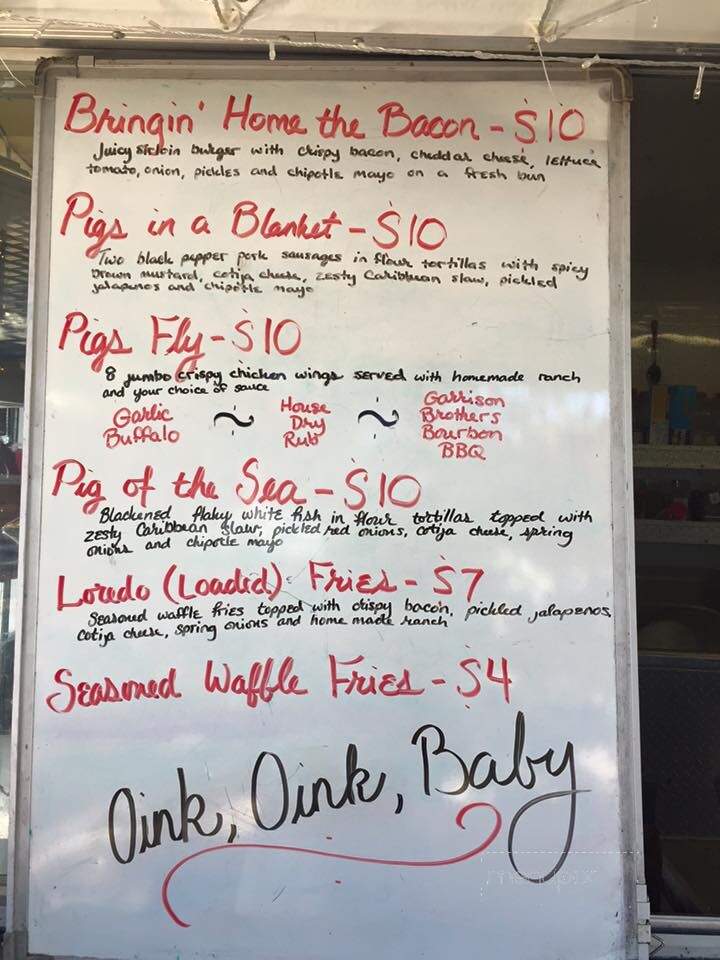 Bringin' Home the Bacon - $10
Juicy sirloin burger with crispy bacon, cheddar cheese, lettuce
tomato, onion, pickles and chipotle mayo on a fresh bun
Pigs in a Blanket - $10
Two black pepper pork sausages in flour tortillas with spicy
brown mustard, cotija cheese, zesty Caribbean slaw, pickled
jalapenos and chipotle mayo
Pigs Fly - $10
8 jumbo crispy chicken wings served with homemade ranch
and your choice of sauce
Garlic
Buffalo
~
House
Dry
Rub
~
Garrison
Brothers
Bourbon
BBQ
Pig of the Sea - $10
Blackened flaky white fish in flour tortillas topped with
zesty Caribbean slaw, pickled red onions, cotija cheese, spring
onions and chipotle mayo
Loredo (Loaded) Fries - $7
Seasoned waffle fries topped with crispy bacon, pickled jalapenos,
cotija cheese, spring onions and home made ranch
Seasoned Waffle Fries - $4
Oink, Oink, Baby